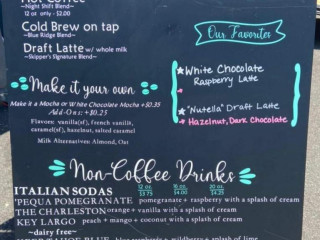 Hot Coffee
~Night Shift Blend~
12 oz. only - $2.00
Cold Brew on tap
~Blue Ridge Blend~
Draft Latte~w/ whole milk
~Skipper's Signature Blend~
Our Favorites
★White Chocolate
Raspberry Latte
★"Nutella" Draft Latte
Hazelnut, Dark Chocolate
Make it your own
Make it a Mocha or White Chocolate Mocha +$0.35
Add-Ons:+$0.25
Flavors: vanilla(sf), french vanilla,
caramel(sf), hazelnut, salted caramel
Milk Alternatives: Almond, Oat
Non-Coffee Drinks
12 oz. 16 oz. 20 oz.
ITALIAN SODAS $3.75 $4.00 $4.25
'PEQUA POMEGRANATE pomegranate + raspberry with a splash of cream
THE CHARLESTON orange + vanilla with a splash of cream
KEY LARGO peach + mango + coconut with a splash of cream
~dairy free~